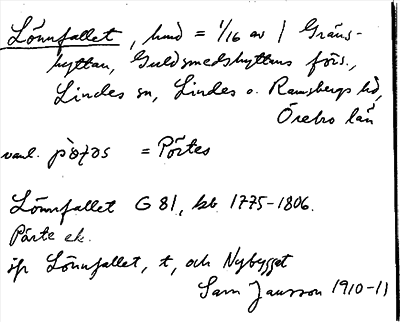 Lönnfallet, hmd = 1/16 av / Gräns-
hyttan, Guldsmedshyttans förs.,
Lindes sn, Lindes o. Ramsbergs hd,
Örebro län
vanl. = Pörtes
Lönnfallet G 81, kb 1775-1806.
Pärte ek.
jfr Lönnfallet, t, och Nybygget
Sam Jansson 1910-11